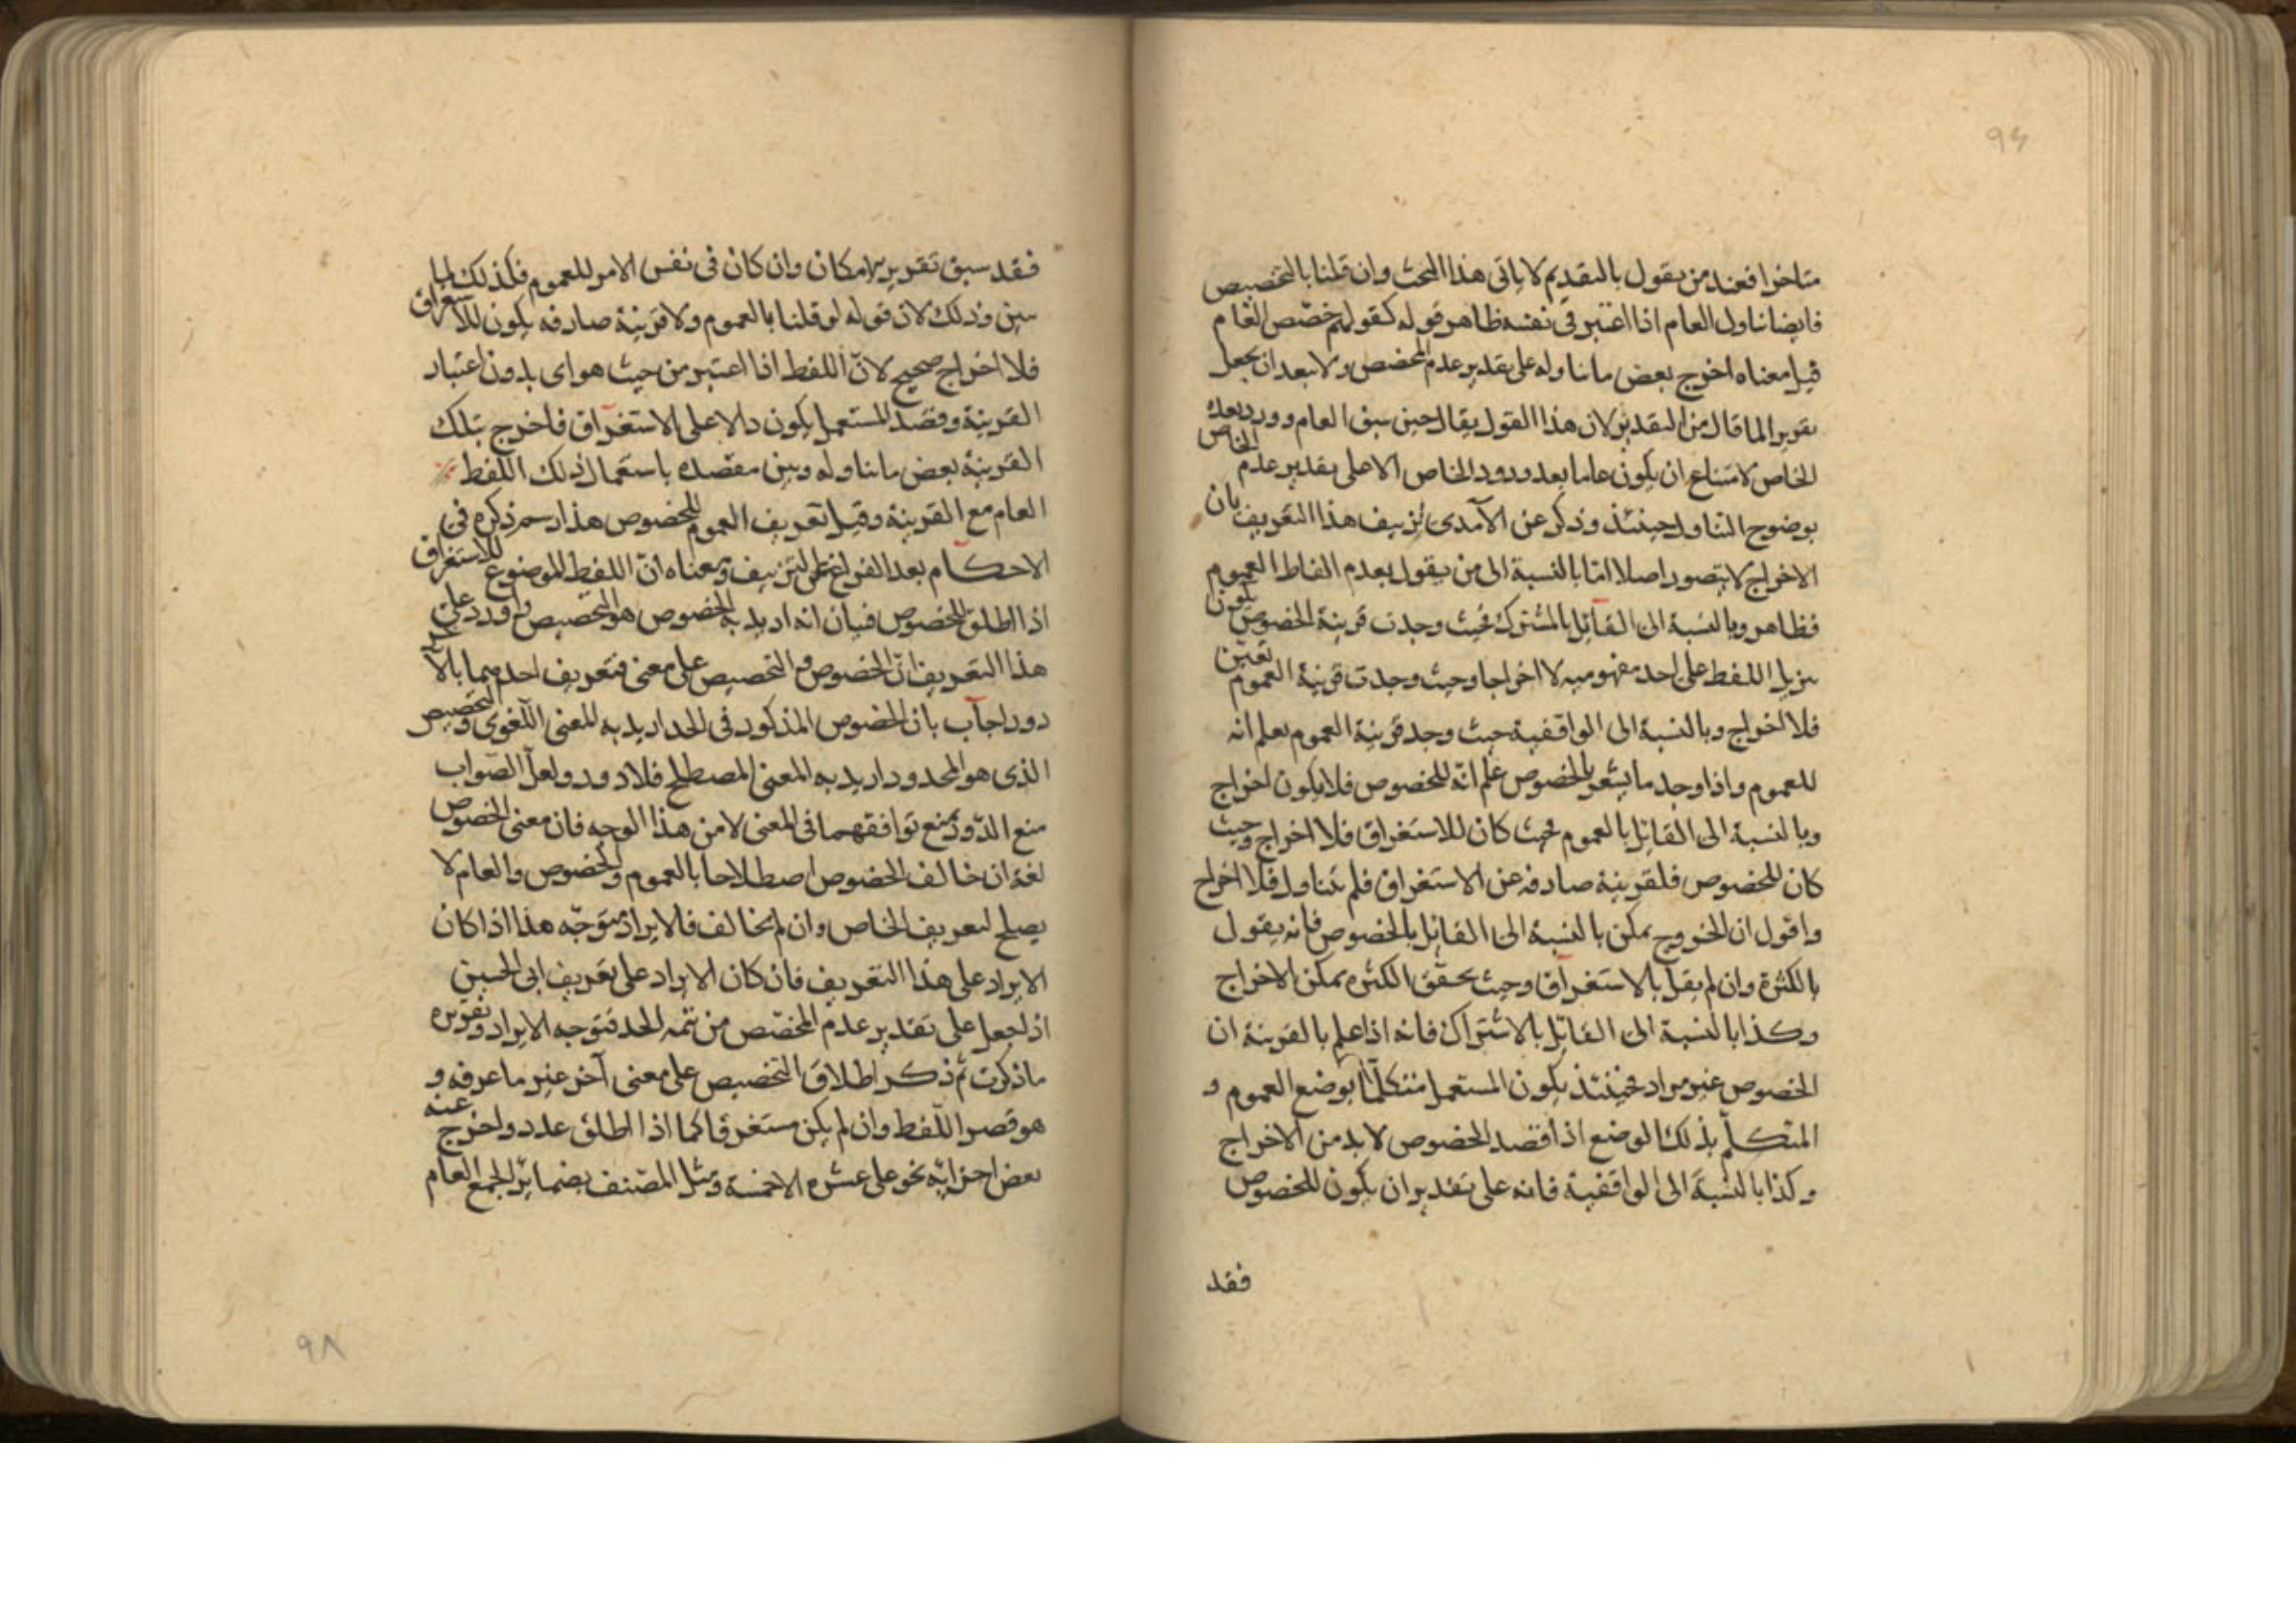 ٩٤
متاخرا فعند من يقول بالتقديم لا ياتى هذا البحث وان قلنا بالتخصيص
فايضا تناول العام اذا اعتبر فى نفسه ظاهر قوله كقولهم خصّص العام
قيل معناه اخرج بعض ما تناوله على تقدير عدم المخصص ولا يبعد ان يجعل
تقريرا لما قال من التقدير لان هذا القول يقال حين سبق العام وورد بعده الخاص
الخاص لامتناع ان يكون عاما بعد ورود الخاص الا على تقدير عدم
بوضوح التناول حينئذ وذكر عن الآمدى تزييف هذا التعريف بان
الاخراج لا يتصور اصلا اما بالنسبة الى من يقول بعدم الفاظ العموم
فظاهر وبالنسبة الى القائل بالمشترك فحيث وجدت قرينة الخصوص يكون
تنزيل اللفظ على احد مفهوميه لا اخراجا وحيث وجدت قرينة العموم تعين
فلا اخراج وبالنسبة الى الواقفية حيث وجد قرينة العموم يعلم انه
للعموم واذا وجد ما يشعر بالخصوص علم انّه للخصوص فلا يكون اخراج
وبالنسبة الى القائل بالعموم فحيث كان للاستغراق فلا اخراج وحيث
كان للخصوص فلقرينة صارفه عن الاستغراق فلم يتناول فلا اخراج
واقول ان الخروج يمكن بالنسبة الى القائل بالخصوص فانه يقول
بالكثرة وان لم يقل بالاستغراق وحيث تحقق الكثره يمكن الاخراج
وكذا بالنسبة الى القائل بالاشتراك فانه اذا علم بالقرينة ان
الخصوص غير مراد فحينئذ يكون المستعمل متكلّما بوضع العموم و
المتكلّم بذلك الوضع اذا قصد الخصوص لا بد من الاخراج
وكذا بالنسبة الى الواقفية فانه على تقدير ان يكون للخصوص
فقد
فقد سبق تقرير الامكان وان كان فى نفس الامر للعموم فكذلك لما
سبق وذلك لان قوله لو قلنا بالعموم ولا قرينة صارفه يكون للاستغراق
فلا اخراج صحيح لانّ اللفظ اذا اعتبر من حيث هو اى بدون اعتبار
القرينة وقصد المستعمل يكون دالا على الاستغراق فاخرج بتلك
القرينة بعض ما تناوله وبين مقصده باستعمال ذلك اللفظ
العام مع القرينة وقيل تعريف العموم للخصوص هذا رسم ذكره فى
الاحكام بعد الفراغ عن التزييف ومعناه انّ اللفظ الموضوع للاستغراق
اذا اطلق للخصوص فبيان انه اريد به الخصوص هو التخصيص واورد على
هذا التعريف انّ الخصوص والتخصيص على معنى فتعريف احدهما بالآخر
دور اجاب بان الخصوص المذكور فى الحد اريد به المعنى اللّغوى والتخصيص
الذى هو المحدود اريد به المعنى المصطلح فلا دور ولعلّ الصّواب
منع الدّور بمنع توافقهما فى المعنى لا من هذا الوجه فان معنى الخصوص
لغة ان خالف الخصوص اصطلاحا بالعموم والخصوص والعام لا
يصلح لتعريف الخاص وان لم يخالف فالايراد متوجّه هذا اذا كان
الايراد على هذا التعريف فان كان الايراد على تعريف ابى الحسين
اذ لجعل على تقدير عدم المخصّص من تتمه الحد فتوجه الايراد وتقريره
ما ذكرت ثم ذكر اطلاق التخصيص على معنى آخر غير ما عرفه و
هو قصر اللّفظ وان لم يكن مستغرقا كما اذا اطلق عدد واخرج عنه
بعض اجزائه نحو على عشره الا خمسة ومثل المصّنف بضمائر الجمع العام
٩٨